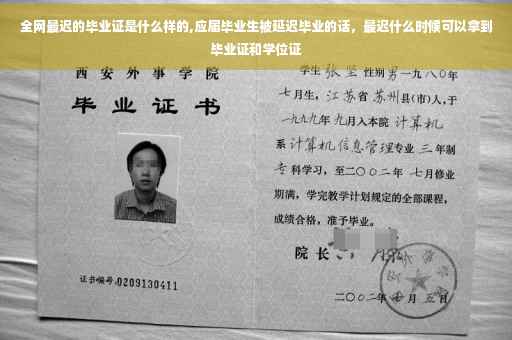 全网最迟的毕业证是什么样的,应届毕业生被延迟毕业的话，最迟什么时候可以拿到
毕业证和学位证
西安外事学院
毕业证书
证书编号:0209130411
学生张 性别男一九八〇年
七月生，江苏省苏州县(市)人,于
一九九九年九月入本院计算机
系计算机信息管理专业三年制
专科学习，至二〇〇二年七月修业
期满，学完教学计划规定的全部课程，
成绩合格，准予毕业。
院长
二〇〇二年 月五日